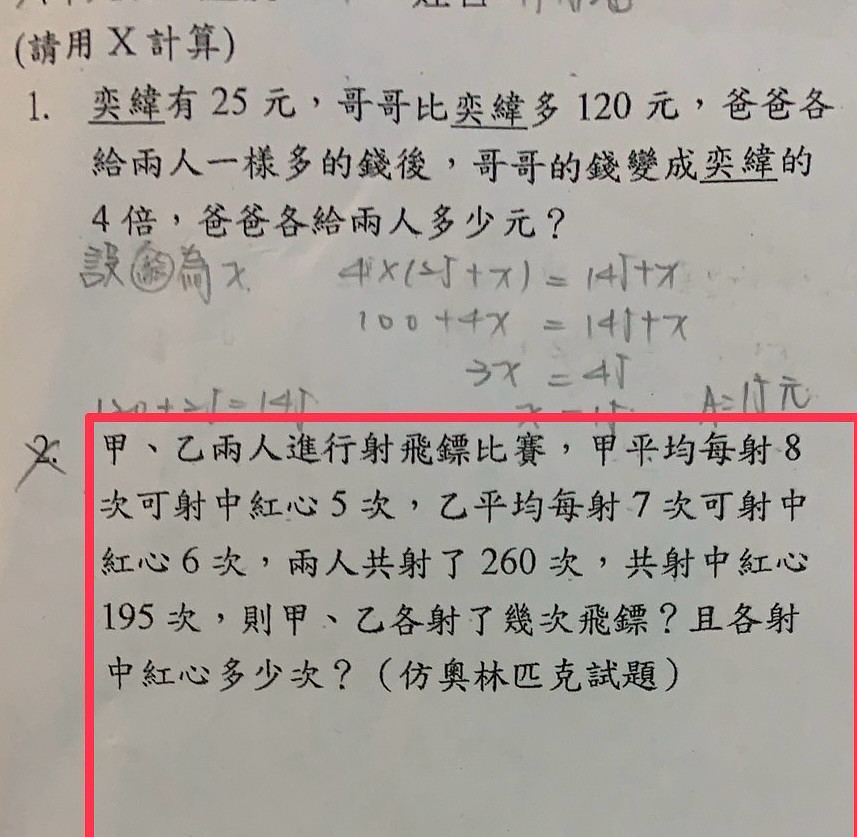 (請用 X 計算)
1. 奕緯有 25 元，哥哥比奕緯多 120 元，爸爸各
給兩人一樣多的錢後，哥哥的錢變成奕緯的
4 倍，爸爸各給兩人多少元？
設 為 x 4×(25+x) = 145+x
100+4x = 145+x
3x = 45
120+25=145 x = 15 A=15元
2. 甲、乙兩人進行射飛鏢比賽，甲平均每射 8
次可射中紅心 5 次，乙平均每射 7 次可射中
紅心 6 次，兩人共射了 260 次，共射中紅心
195 次，則甲、乙各射了幾次飛鏢？且各射
中紅心多少次？（仿奧林匹克試題）